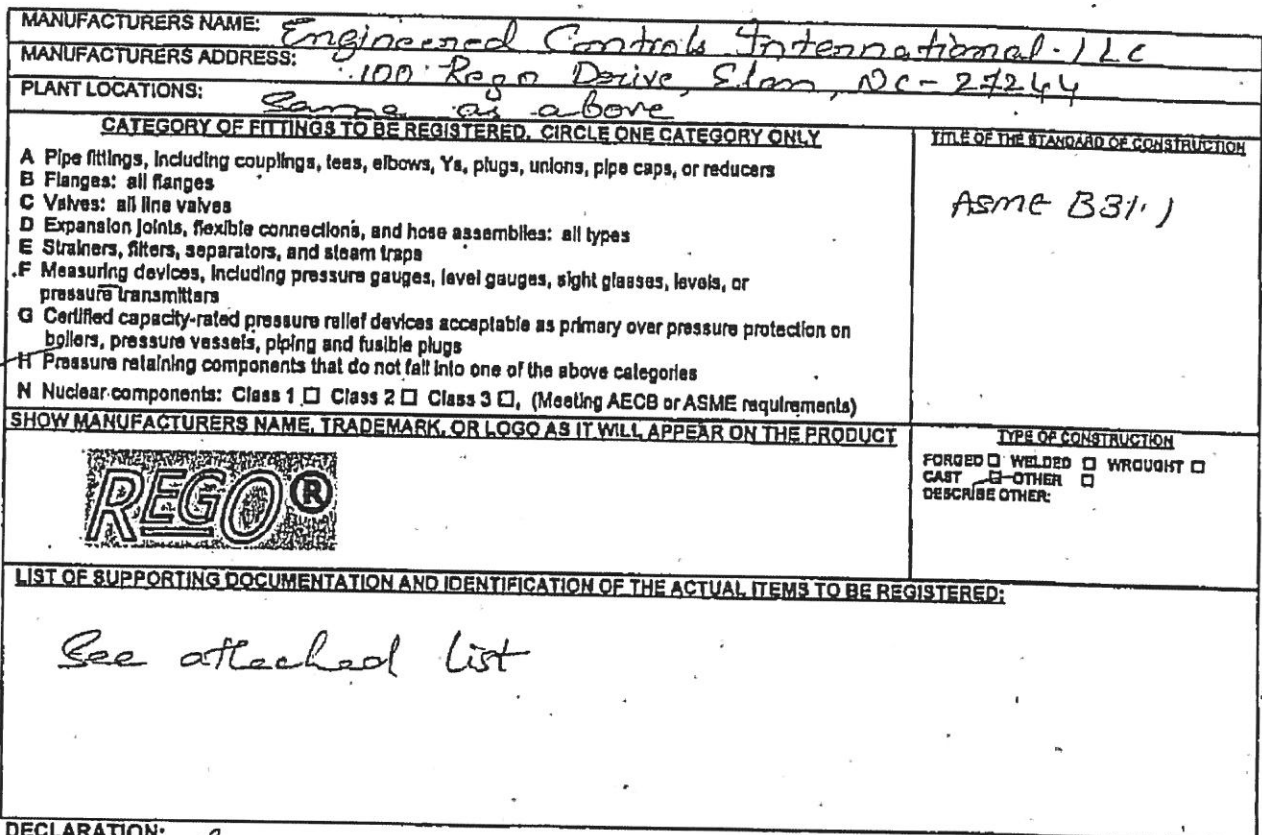 MANUFACTURERS NAME: Engineered Controls International. LLC
MANUFACTURERS ADDRESS: 100 Rego Derive, Elon, NC - 27244
PLANT LOCATIONS: Same as above
CATEGORY OF FITTINGS TO BE REGISTERED. CIRCLE ONE CATEGORY ONLY
A Pipe fittings, including couplings, tees, elbows, Ys, plugs, unions, pipe caps, or reducers
B Flanges: all flanges
C Valves: all line valves
D Expansion joints, flexible connections, and hose assemblies: all types
E Strainers, filters, separators, and steam traps
F Measuring devices, including pressure gauges, level gauges, sight glasses, levels, or
pressure transmitters
G Certified capacity-rated pressure relief devices acceptable as primary over pressure protection on
boilers, pressure vessels, piping and fusible plugs
H Pressure retaining components that do not fall into one of the above categories
N Nuclear components: Class 1 ☐ Class 2 ☐ Class 3 ☐, (Meeting AECB or ASME requirements)
TITLE OF THE STANDARD OF CONSTRUCTION
ASME B31.1
SHOW MANUFACTURERS NAME, TRADEMARK, OR LOGO AS IT WILL APPEAR ON THE PRODUCT
REGO®
TYPE OF CONSTRUCTION
FORGED ☐ WELDED ☐ WROUGHT ☐
CAST ☐ OTHER ☐
DESCRIBE OTHER:
LIST OF SUPPORTING DOCUMENTATION AND IDENTIFICATION OF THE ACTUAL ITEMS TO BE REGISTERED:
See attached list
DECLARATION: